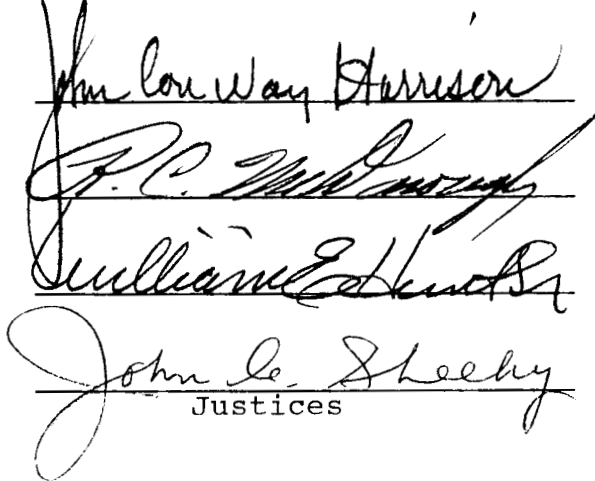 John Conway Harrison
R. C. McDonough
William E. Hunt Sr
John C. Sheehy
Justices